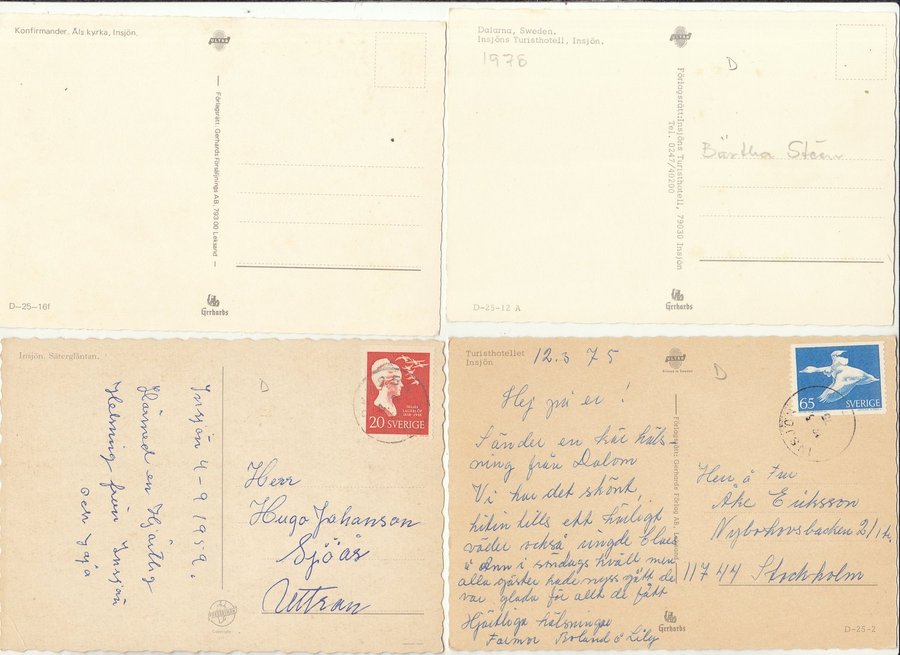 Konfirmander. Åls kyrka, Insjön.
ULTRA
— Förlagsrätt: Gerhards Försäljnings AB, 793 00 Leksand —
D—25—16f
Gerhards
Dalarna, Sweden.
Insjöns Turisthotell, Insjön.
1978
ULTRA
D
Förlagsrätt: Insjöns Turisthotell, 79030 Insjön
Tel. 0247/40200
D-25-12 A
Gerhards
Insjön. Sätergläntan.
D
SELMA
LAGERLÖF
1858-1940
20 SVERIGE
Insjön 4-9 1959.
Härmed en Hjärtlig
Helsning från Insjön
och Jaja
Herr
Hugo Johanson
Sjöås
Uttran
Copyright
Turisthotellet
Insjön
12.3 75
ULTRA
D
65 SVERIGE
Förlagsrätt: Gerhards Förlag AB,
Hej på er!
Sänder en kär häls
ning från Dalom
Vi har det skönt,
hitin tills ett härligt
väder också ringde Claes
o Ann i söndags kväll men
alla gäster hade nyss gått de
var glada för allt de fått
Hjärtliga hälsningar
Farmor Roland o Lily
Herr o Fru
Åke Eriksson
Nybohovsbacken
11744 Stockholm
Gerhards
D-25-2